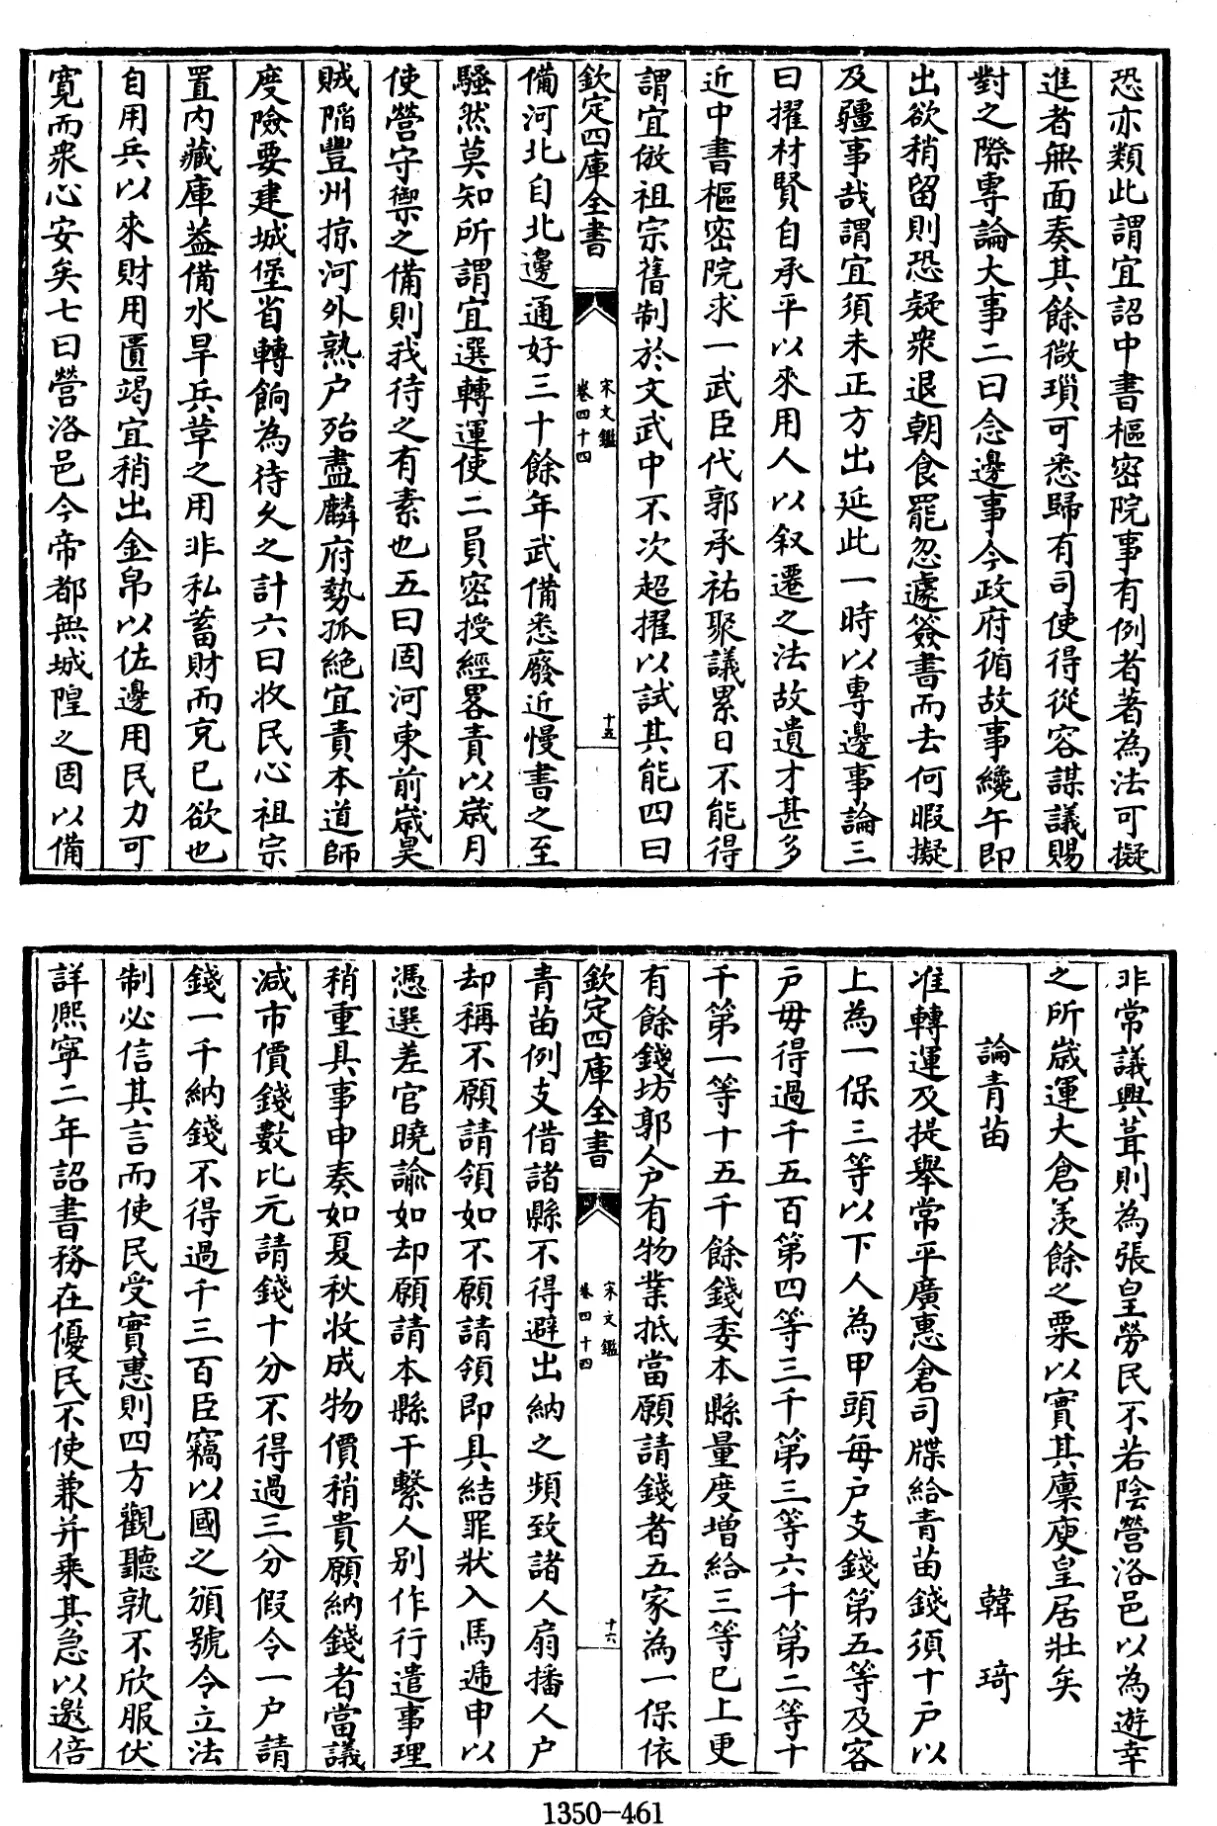 恐亦類此謂宜詔中書樞密院事有例者著為法可擬
進者無面奏其餘微瑣可悉歸有司使得從容謀議賜
對之際專論大事二曰念邊事今政府循故事纔午即
出欲稍留則恐疑衆退朝食罷忽遽簽書而去何暇擬
及疆事哉謂宜須未正方出延此一時以專邊事論三
曰擢材賢自承平以來用人以叙遷之法故遺才甚多
近中書樞密院求一武臣代郭承祐聚議累日不能得
謂宜倣祖宗舊制於文武中不次超擢以試其能四曰
欽定四庫全書
宋文鑑
卷四十四
十五
備河北自北邊通好三十餘年武備悉廢近慢書之至
騷然莫知所謂宜選轉運使二員密授經畧責以歲月
使營守禦之備則我待之有素也五曰固河東前歲昊
賊陷豐州掠河外熟户殆盡麟府勢孤絶宜責本道師
度險要建城堡省轉餉為待久之計六曰收民心祖宗
置内藏庫葢備水旱兵革之用非私蓄財而充已欲也
自用兵以來財用匱竭宜稍出金帛以佐邊用民力可
寛而衆心安矣七曰營洛邑今帝都無城隍之固以備
非常議興葺則為張皇勞民不若陰營洛邑以為遊幸
之所歲運大倉羨餘之粟以實其廪庾皇居壯矣
論青苗
韓琦
准轉運及提舉常平廣惠倉司牒給青苗錢須十户以
上為一保三等以下人為甲頭每户支錢第五等及客
户毋得過千五百第四等三千第三等六千第二等十
千第一等十五千餘錢委本縣量度増給三等已上更
有餘錢坊郭人户有物業抵當願請錢者五家為一保依
欽定四庫全書
宋文鑑
卷四十四
十六
青苗例支借諸縣不得避出納之頻致諸人扇播人户
却稱不願請領如不願請領即具結罪狀入馬遞申以
憑選差官曉諭如却願請本縣干繫人别作行遣事理
稍重具事申奏如夏秋收成物價稍貴願納錢者當議
减市價錢數比元請錢十分不得過三分假令一户請
錢一千納錢不得過千三百臣竊以國之頒號令立法
制必信其言而使民受實惠則四方觀聽孰不欣服伏
詳熙寧二年詔書務在優民不使兼并乗其急以邀倍
1350-461